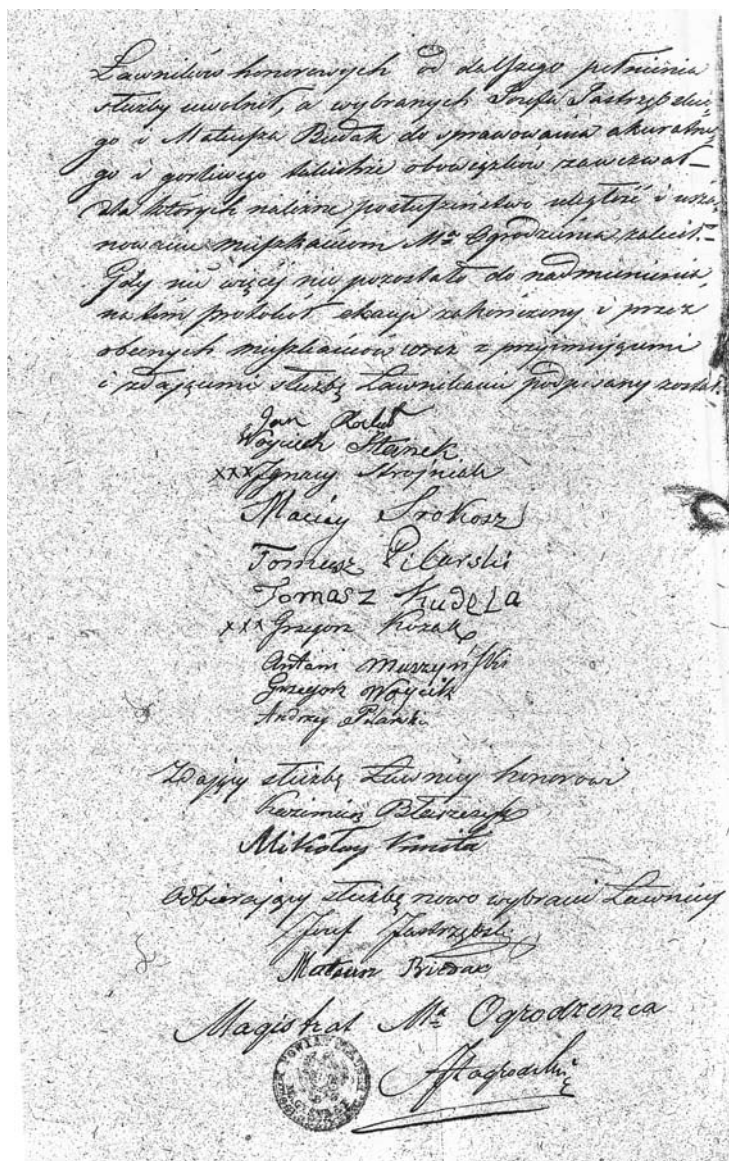 Ławników honorowych od dalszego pełnienia
służby uwolnił, a wybranych Józefa Jastrzębskie-
go i Mateusza Biedak do sprawowania akuratne-
go i gorliwego takichże obowiązków zawezwał –
dla których należne posłuszeństwo uległość i usza-
nowanie mieszkańcom Mta Ogrodzieńca zalecił. –
Gdy nic więcej nie pozostało do nadmienienia,
na tém protokół skończony i przez
obecnych mieszkańców wraz z przyjmującymi
i zdającymi służbę Ławnikami podpisany został.
Jan
Wojciech Stanek
xxx Ignacy Strojniak
Maciey Srokosz
Tomasz Pilarski
Tomasz Kudeła
xxx Grzegorz Kozak
Antoni Muszyński
Grzegorz Wojcik
Andrzej Pilarski
Zdający służbę Ławnicy honorowi
Kazimierz Błaszczyk
Mikołay Kmita
Odbierający służbę nowo wybrani Ławnicy
Józef Jastrzębski
Mateusz Biedak
Magistrat Mta Ogrodzenca